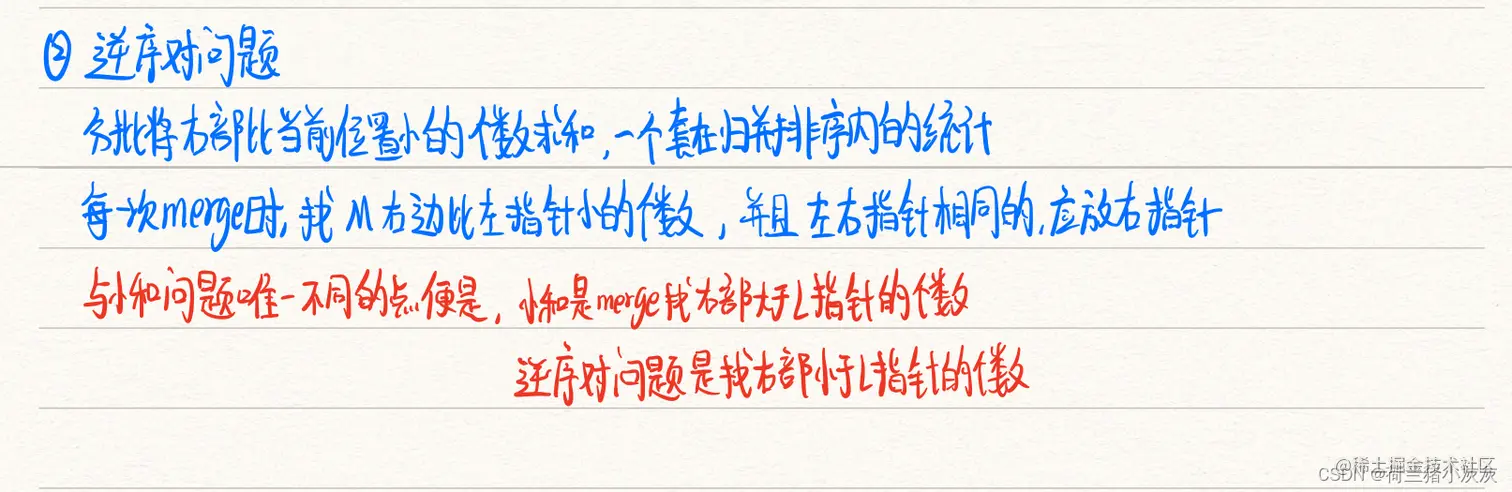 ② 逆序对问题
分批将右部比当前位置小的个数求和,一个套在归并排序内的统计
每一次merge时,找 M右边比左指针小的个数,并且左右指针相同的,应放右指针
与小和问题唯一不同的点便是,小和是merge找右部大于L指针的个数
逆序对问题是找右部小于L指针的个数
@稀土掘金技术社区
CSDN @荷兰猪小灰灰